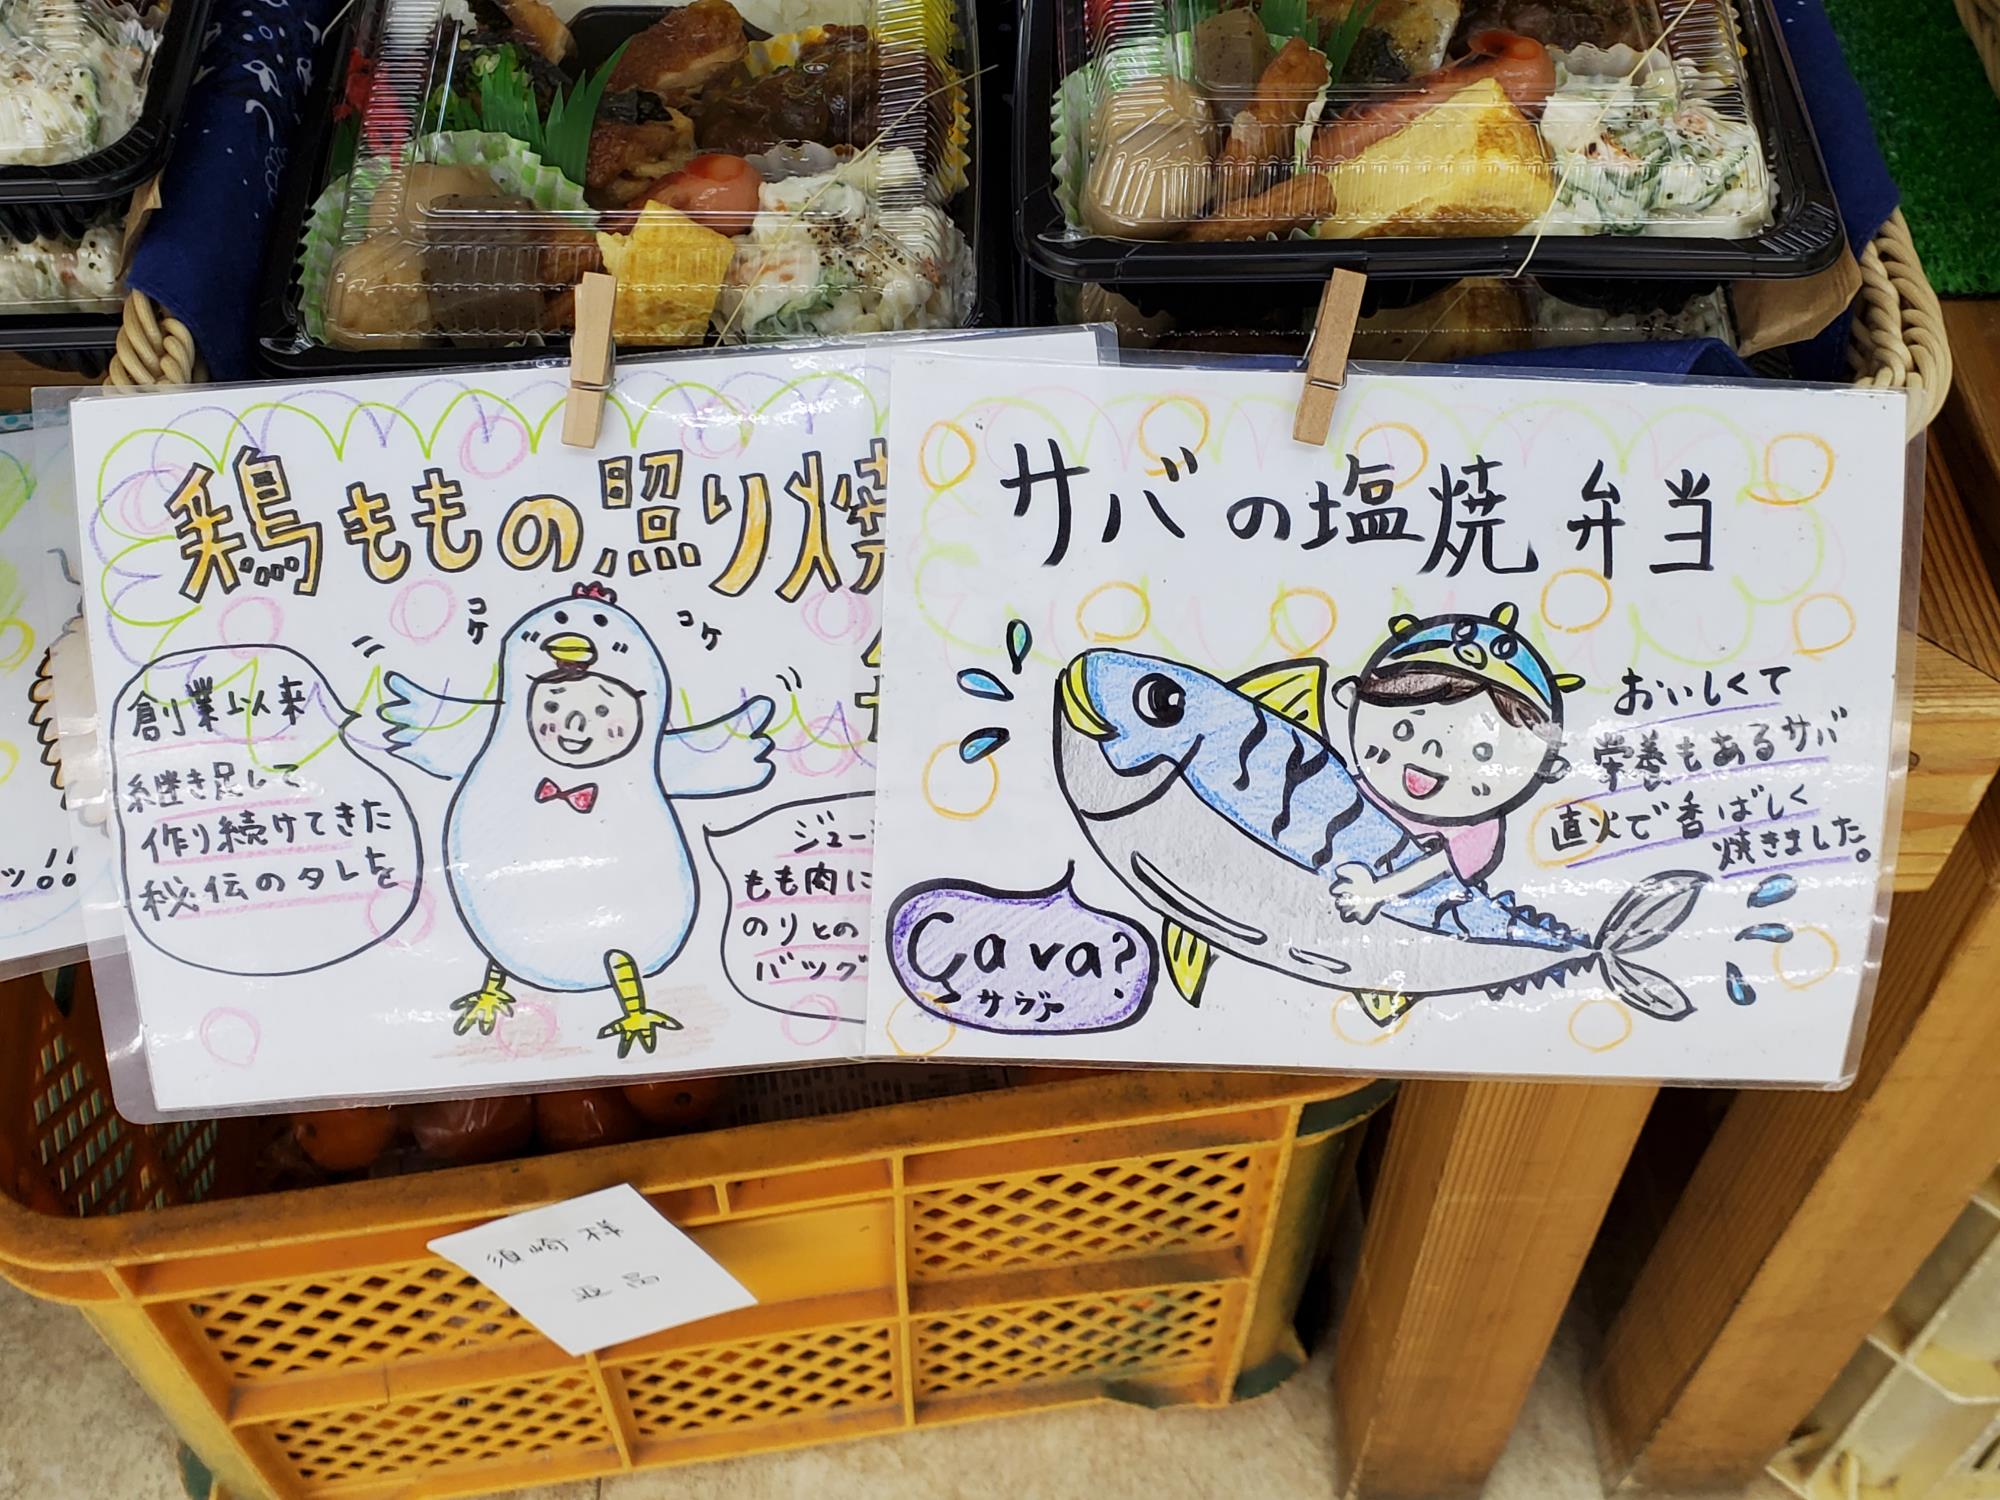 鶏ももの照り焼
コケ
コケ
創業以来
継ぎ足して
作り続けてきた
秘伝のタレを
ジュー
もも肉に
のりとの
バツグ
ッ!!
サバの塩焼弁当
おいしくて
栄養もあるサバ
直火で香ばしく
焼きました。
Ça va?
サヴァ
須崎 祥
亜 昌